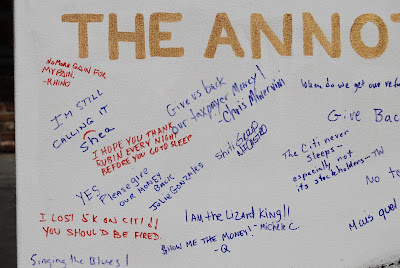 THE ANNOT
NO MORE GAIN FOR
MY PAIN.
-RHINO
I'M STILL
CALLING IT
Shea
Give us back
our taxpayer money!
- Chris
When do we get our refu
Give Bac
I HOPE YOU THANK
RUBIN EVERY NIGHT
BEFORE YOU GO TO SLEEP
The Citi never
sleeps—
especially not
its stockholders—TW
YES
Please give
our MONEY
BACK
Julie Gonzales
No to
I LOST 5K ON CITI!!
YOU SHOULD BE FIRED.
I AM the Lizard King!!
SHOW ME THE MONEY! - Michele C.
-Q
Mais quel
Singing the Blues!